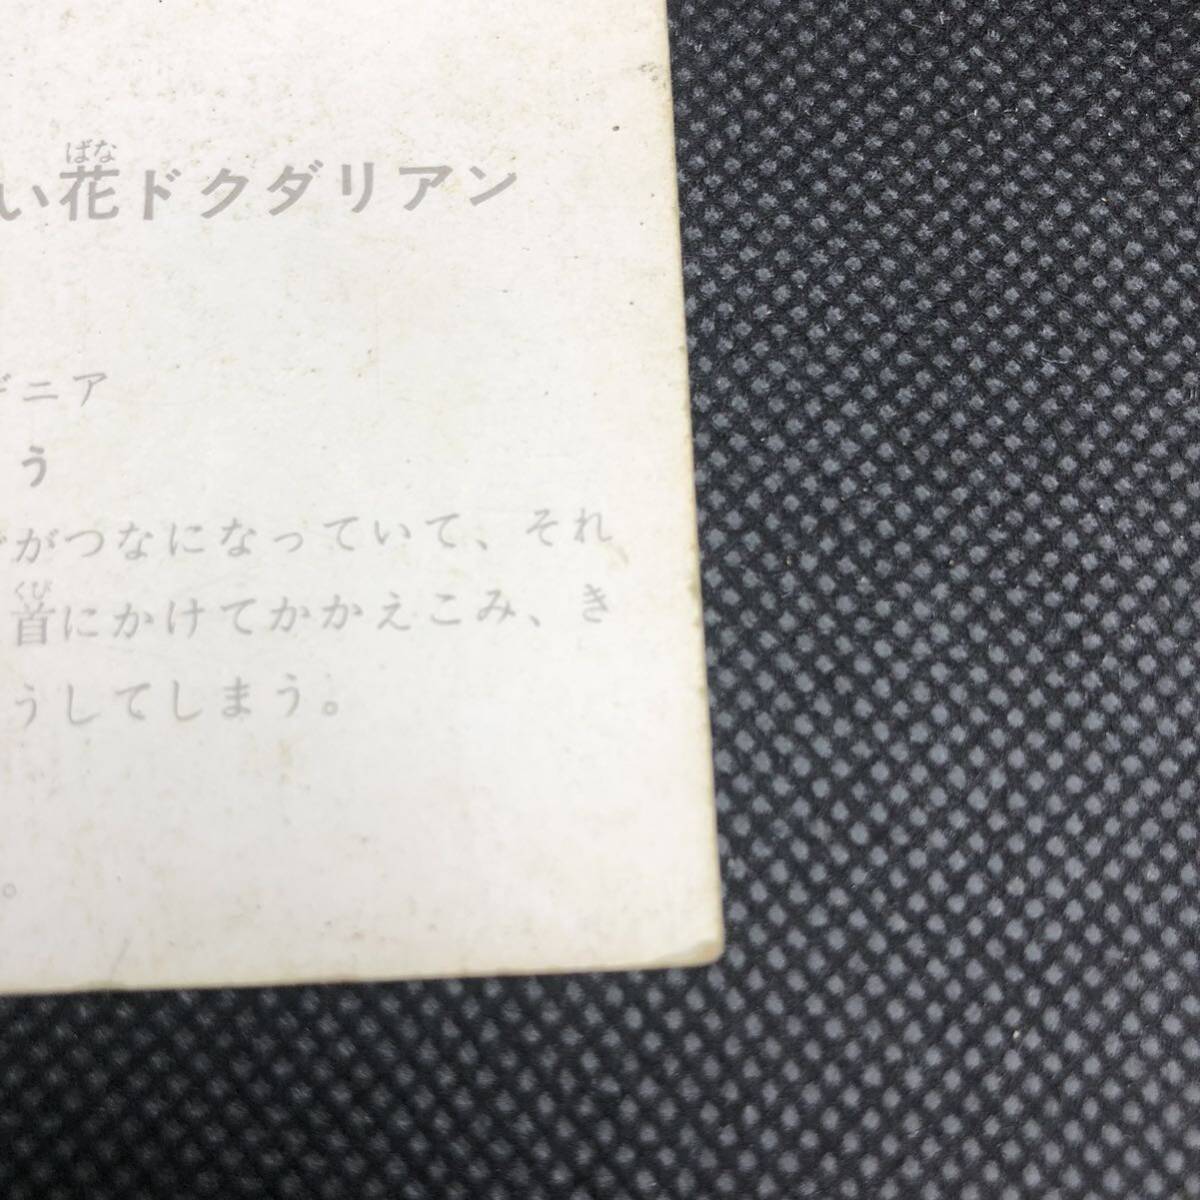 ばな
い花ドクダリアン
ドニア
う
がつなになっていて、それ
くび
首にかけてかかえこみ、き
うしてしまう。
。